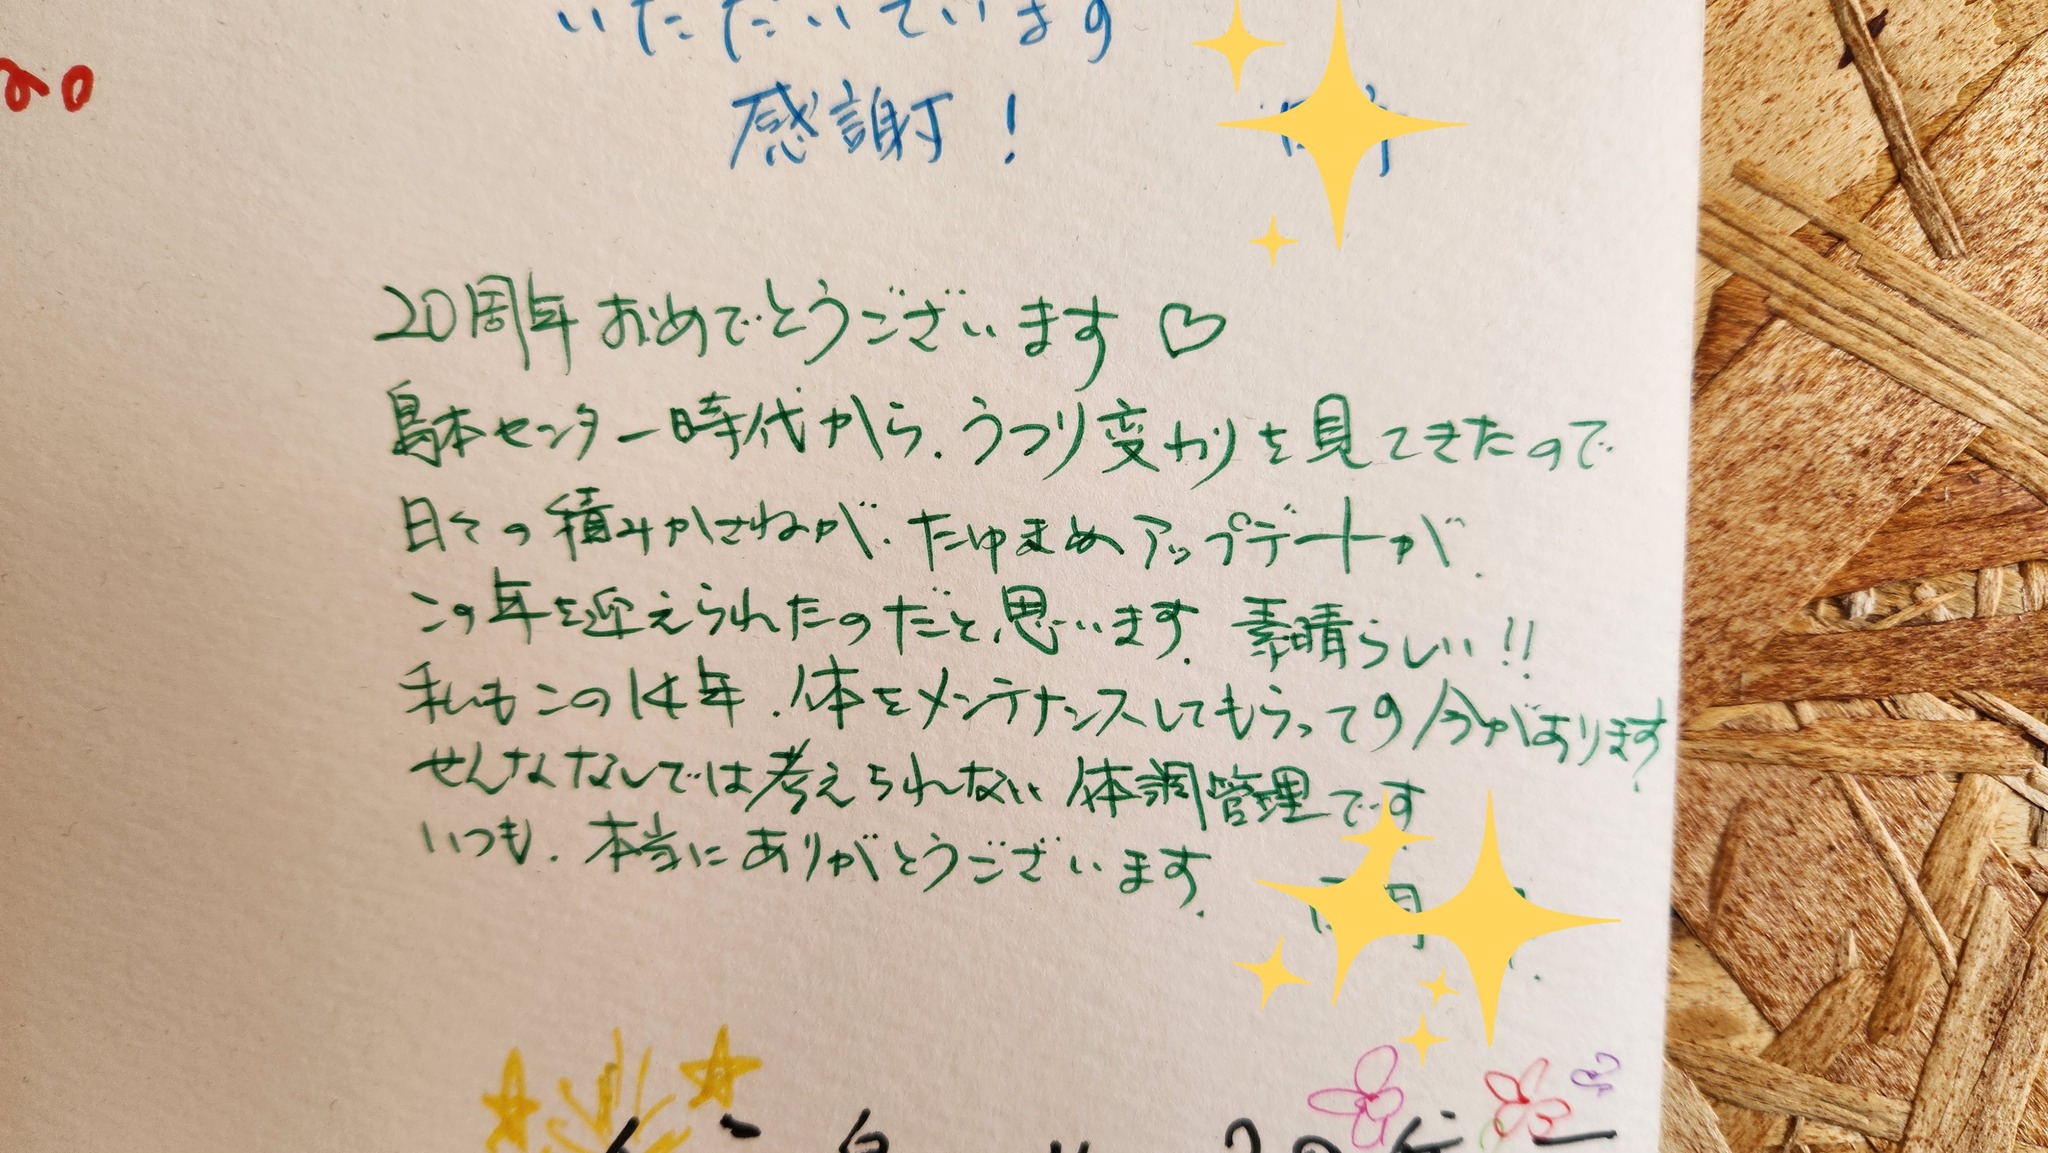 いただいています
感謝!
20周年おめでとうございます♡
島本センター時代から、うつり変わりを見てきたので
日々の積みかさねが、たゆまぬアップデートが、
この年を迎えられたのだと思います。素晴らしい!!
私もこの14年、体をメンテナンスしてもらって今があります。
せんなしでは考えられない体調管理です
いつも、本当にありがとうございます。